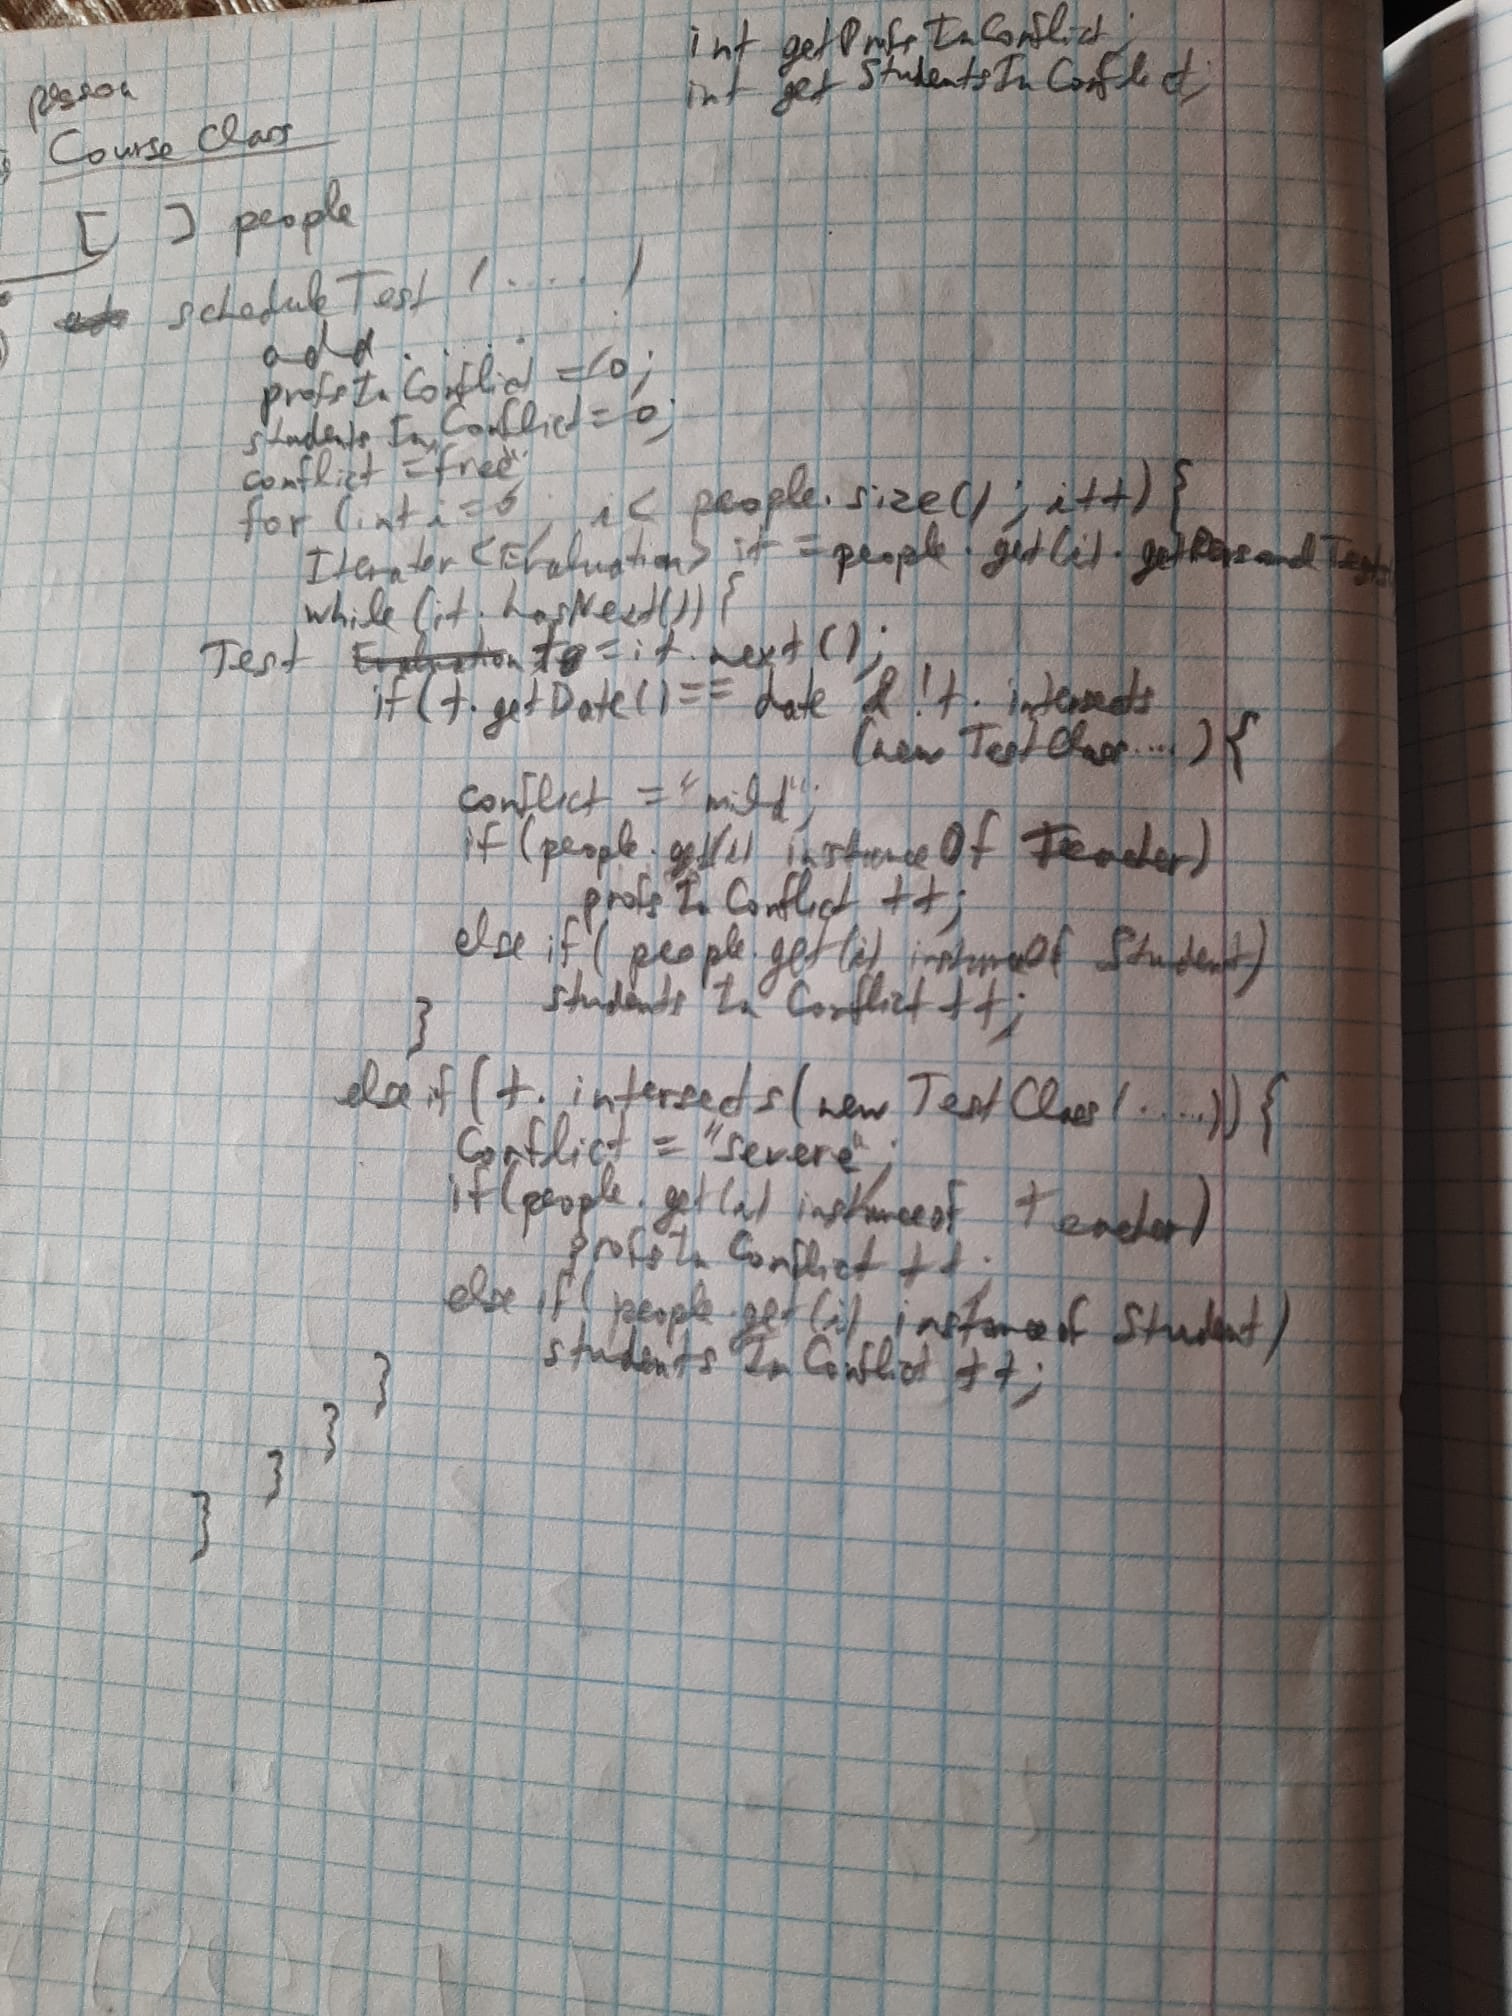 int getProfsInConflict;
int get StudentsInConflict;
person
Course Class
[ ] people
scheduleTest ( .... )
add .....
profsInConflict = 0;
studentsInConflict = 0;
conflict = free";
for (int i = 0; i < people.size(); i++) {
Iterator <Evaluation> it = people.get(i).getPersonalTests
while (it.hasNext()) {
Test Evaluation t = it.next();
if (t.getDate() == date & !t.intersects
(new TestClass....) {
conflict = "mild";
if (people.get(i) instanceOf Teacher)
profsInConflict ++;
else if ( people.get(i) instanceOf Student)
students In Conflict ++;
}
else if (t. intersects (new TestClass (.....)) {
Conflict = "severe";
if (people.get(i) instanceof Teacher)
profsInConflict ++;
else if ( people.get(i) instanceof Student)
students In Conflict ++;
}
}
}
}